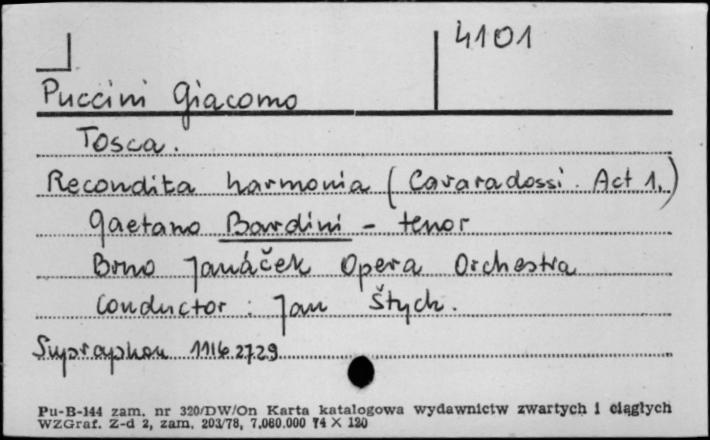 4101
Puccini Giacomo
Tosca.
Recondita harmonia (Cavaradossi. Act 1.)
Gaetano Bardini - tenor
Brno Janáček Opera Orchestra
Conductor : Jan Štych.
Supraphon 1116 2729
Pu-B-144 zam. nr 320/DW/On Karta katalogowa wydawnictw zwartych i ciągłych
WZGraf. Z-d 2, zam. 203/78, 7.080.000 74 X 120